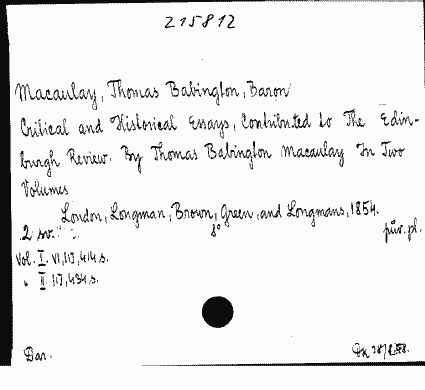 215812
Macaulay, Thomas Babington, Baron
Critical and Historical Essays, Contributed to The Edin-
burgh Review. By Thomas Babington Macaulay In Two
Volumes
London, Longman, Brown, Green, and Longmans, 1854.
2 sv. 8° pův. pl.
Vol. I. VI, 414 s.
" II. 434 s.
Dar.